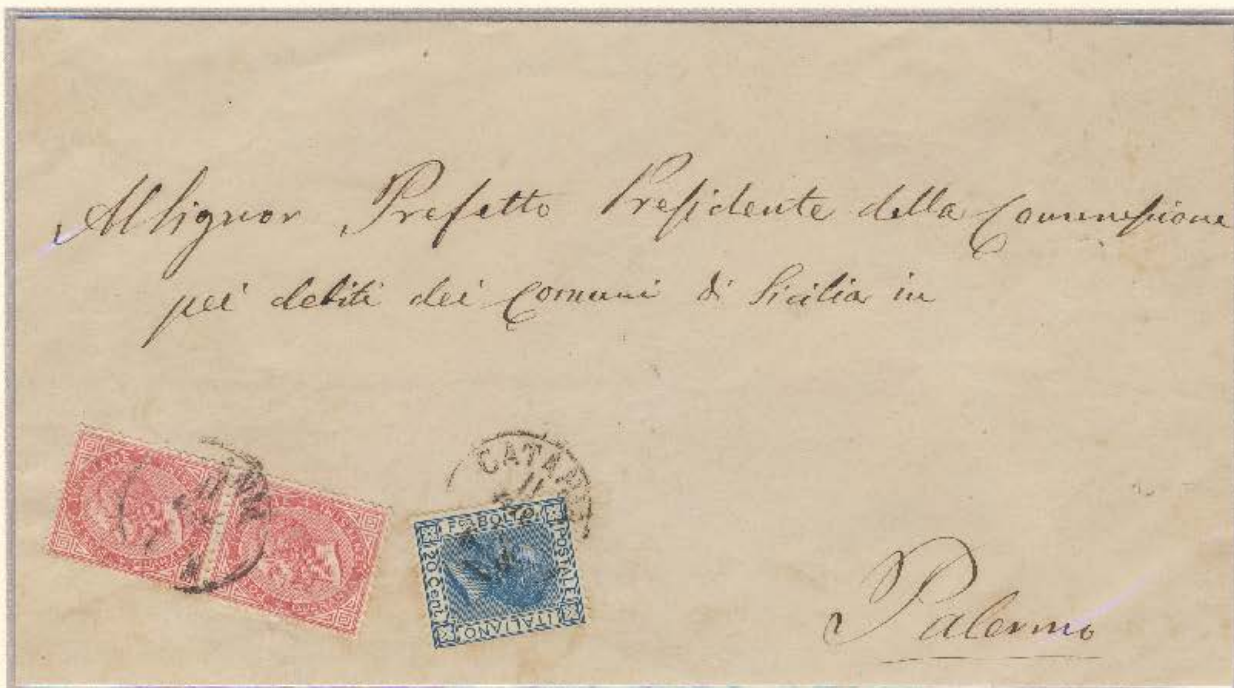 Al Signor Prefetto Presidente della Commessione
pei debiti dei Comuni di Sicilia in
Palermo
CATANIA
11
FCO BOLLO
POSTALE
ITALIANO
20 Cent